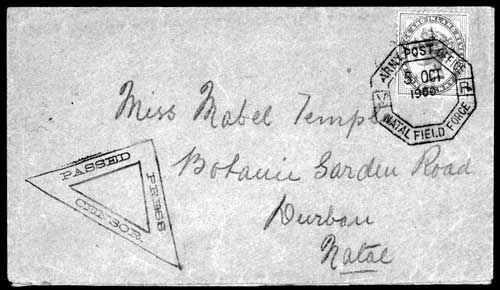 ARMY POST OFFICE
5 OCT
1900
NATAL FIELD FORCE
Miss Mabel Temple
Botanic Garden Road
Durban
Natal
PASSED
PRESS
CENSOR.